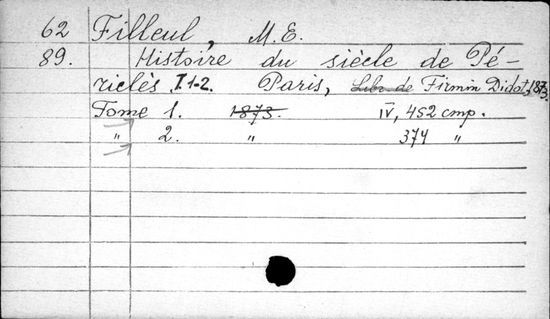 62 Filleul, M. E.
89. Histoire du siècle de Pé-
riclès T. 1-2. Paris, Libr. de Firmin Didot, 1873.
Tome 1. 1873. IV, 452 cmp.
" 2. " 374 "